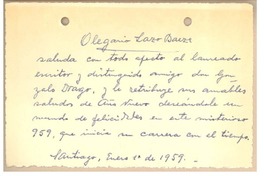 Olegario Lazo Baeza
saluda con todo afecto al laureado
escritor y distinguido amigo don Gon-
zalo Drago, y le retribuye sus amables
saludos de Año Nuevo deseándole un
mundo de felicidades en este misterioso
959, que inicia su carrera con el tiempo.
Santiago, Enero 1º de 1959.